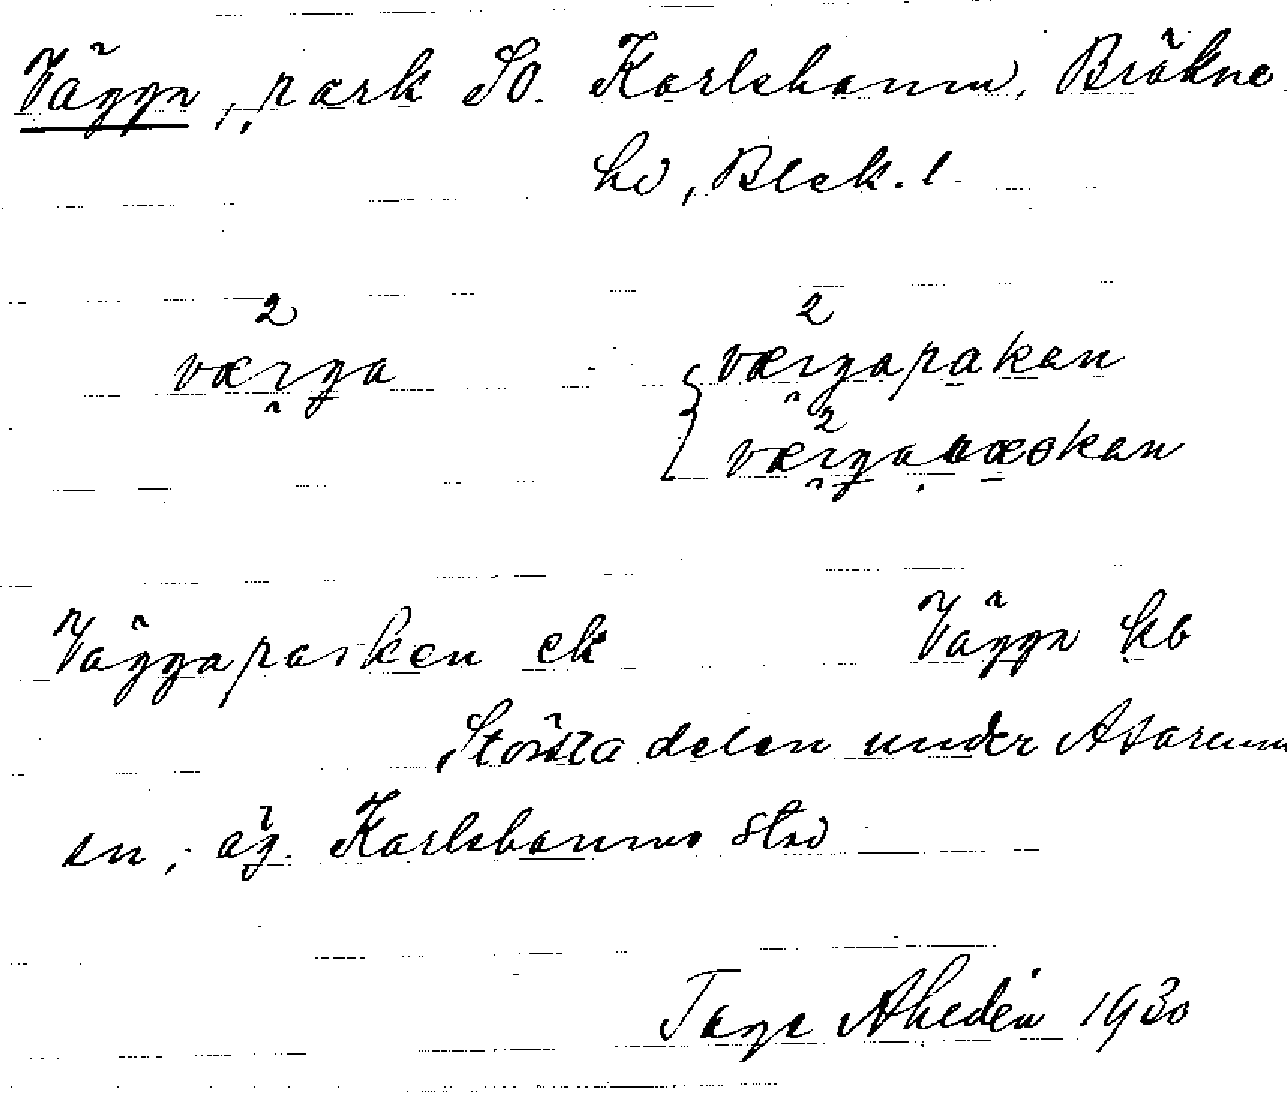 Vägga, park SO. Karlshamn, Bräkne
hd, Blek. l
2 2
værga værgapakan
2
værga
Väggaparken ek Vägga kb
Största delen under Asarum
sn, äg. Karlshamns stad
Tage Ahedén 1930